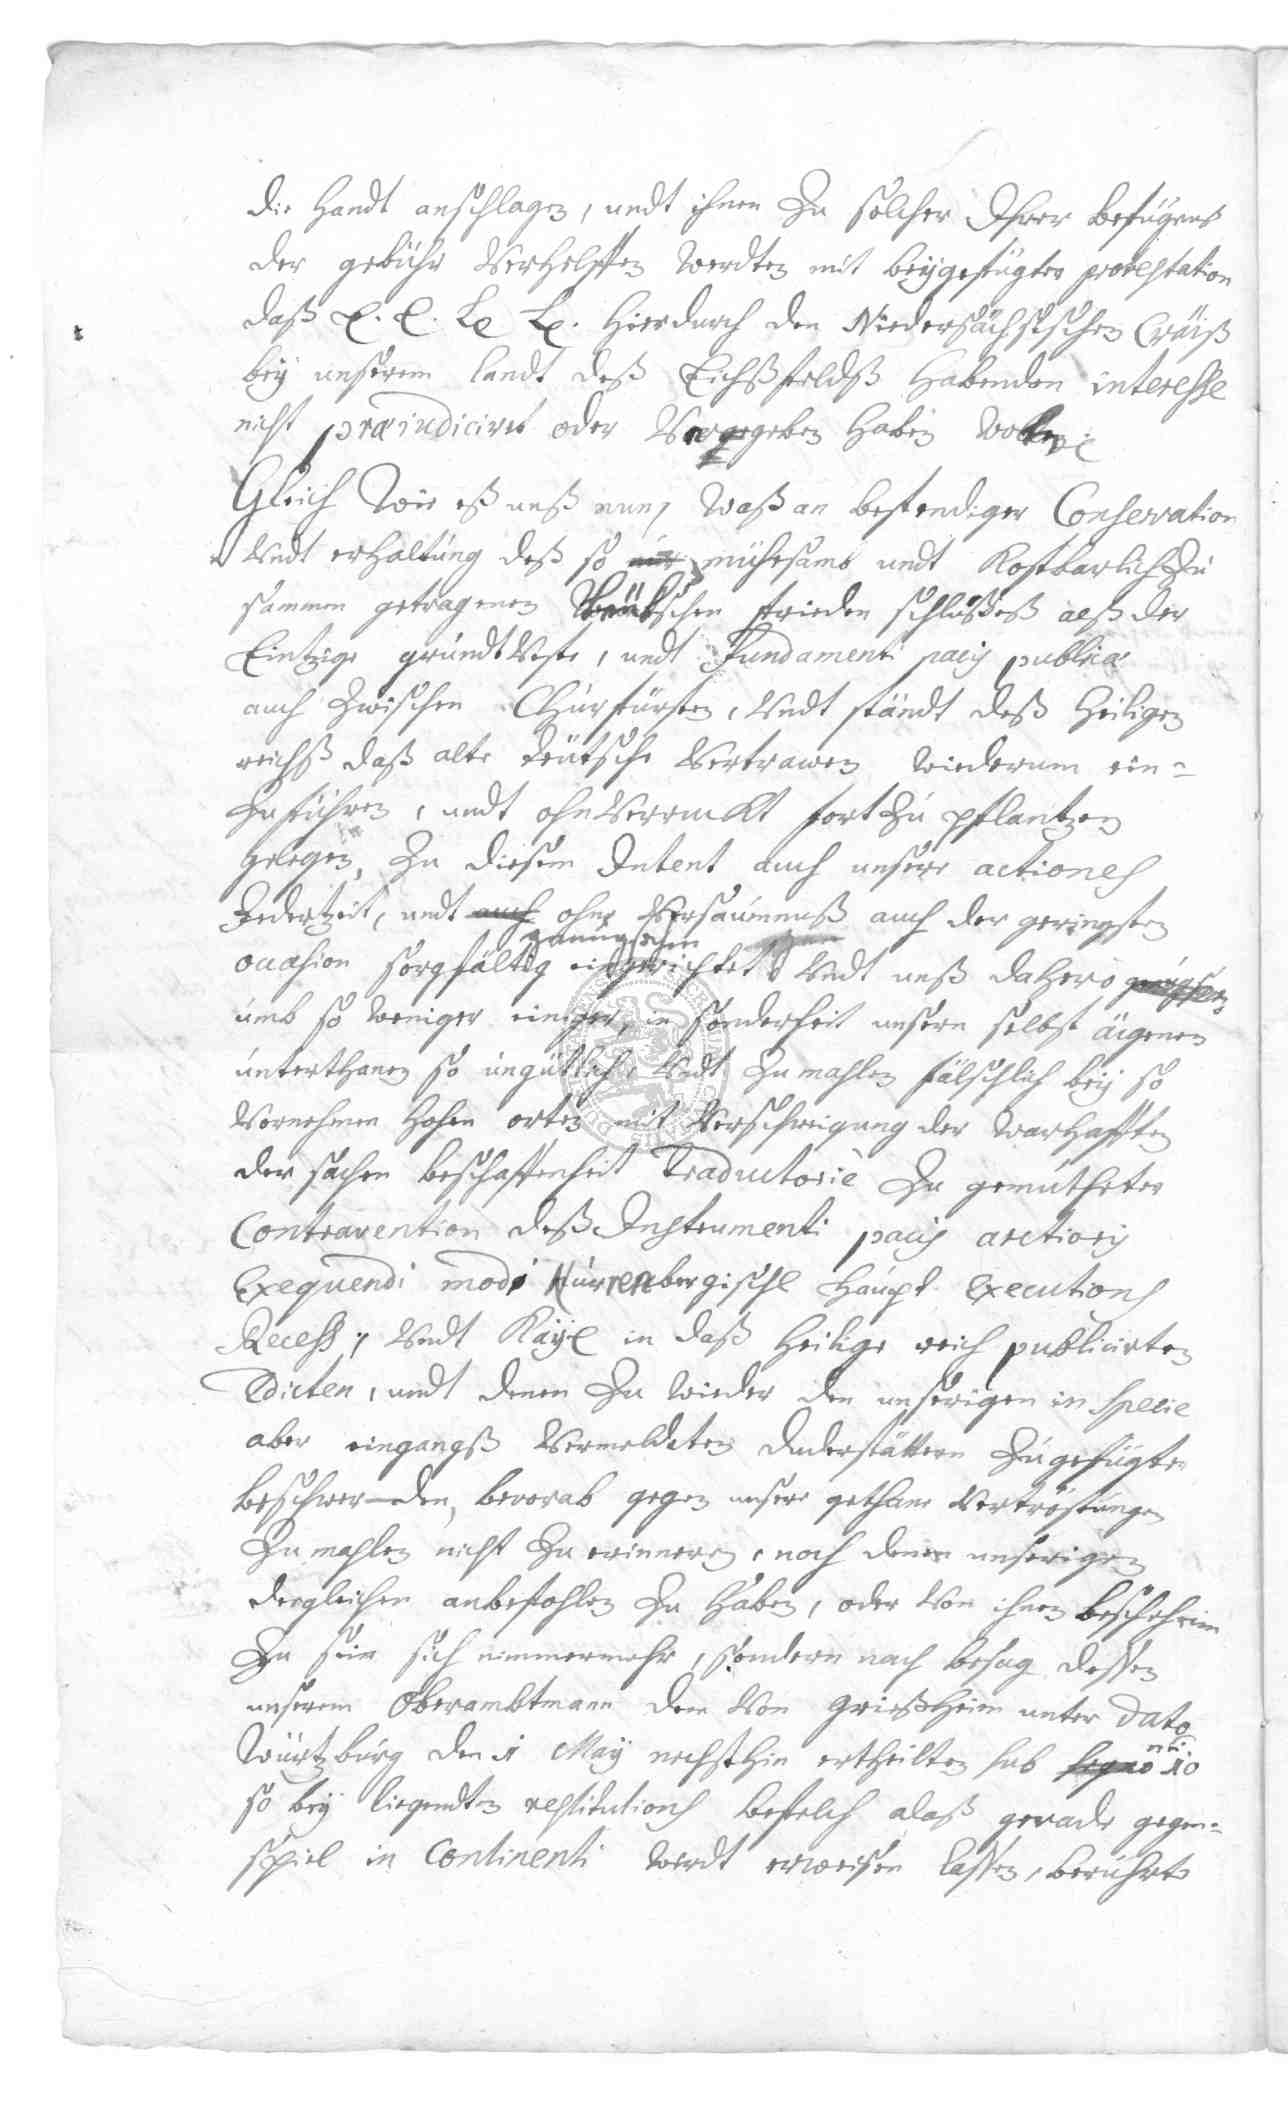 die Handt anschlagen, undt ihnen Zu solcher Ihrer befügnus
der gebühr Verhelffen werdten mit beygefügter protestation
daß E. E. Ld Ld. hierdurch den Niedersächsischen Craiß
bey unserem landt deß Eichßfeldß habenden interesse
nicht præiudicirt oder Vergegeben haben wollen
Gleich wie eß unß nun, waß an bestendiger Conservation
Undt erhaltung deß so mühesamb undt Kostbarlich Zu
sammen getragenen Teütschen frieden schlußeß alß der
Eintzige grundt Veste, undt Fundamenti pacis publicæ
auch Zwischen Churfürsten, Undt ständt deß Heiligen
reichß daß alte teütsche Vertrawen wiederum ein-
Zuführen, undt ohnVerruckt fort Zu pflantzen
gelegen, Zu diesem Intent auch unsere actiones
Jederzeit, undt auch ohne Versäumnuß auch der geringsten
occasion sorgfältig eingerichtet Undt unß dahero
umb so weniger einiger, in sonderheit unsern selbst äigenen
unterthanen so ungütlich, Undt Zumahlen fälschlich bey so
Vornehmen hohen orten mit Verschweigung der warhafften
der sachen beschaffenheit Traductoriè Zu gemutheter
Contravention deß Instrumenti pacis arctioris
Exequendi modi Nürrenbergische Haupt Executions
Recess, Undt Kayl in daß Heilige reich publicirten
Edicten, undt denen Zu wieder den unserigen in specie
aber eingangß Vermeldeten Duderstättern Zugefügter
beschwerden, bevorab gegen unsere gethane Vertröstungen
Zumahlen nicht Zu erinneren, noch denen unserigen
dergleichen anbefohlen Zu haben, oder Von ihnen beschehen
Zu sein sich nimmermehr, sondern nach besag dessen
unserem Oberambtmann dem Von Grießheim unter dato
Würtzburg den 1 May nechsthin ertheilten sub signo nro 10
so bey liegendten restitutions befelch alaß gerade gegen-
spiel in Continenti wirdt erweisen lassen, berührte